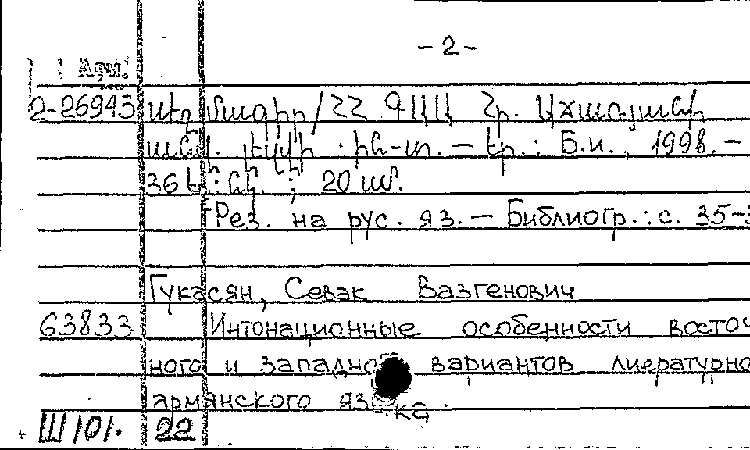 - 2 -
Арм.
2-26943 սեղմագիր / ՀՀ ԳԱԱ Հր. Աճառյանի
անվ. լեզվի ին-տ. — Եր. : Б.и., 1998. –
36 էջ : աղ. ; 20 սմ.
Рез. на рус. яз. — Библиогр.: с. 35-3
Гукасян, Севак Вазгенович
63833 Интонационные особенности восточ
ного и западного вариантов лиературно
армянского языка.
Ш101. 22